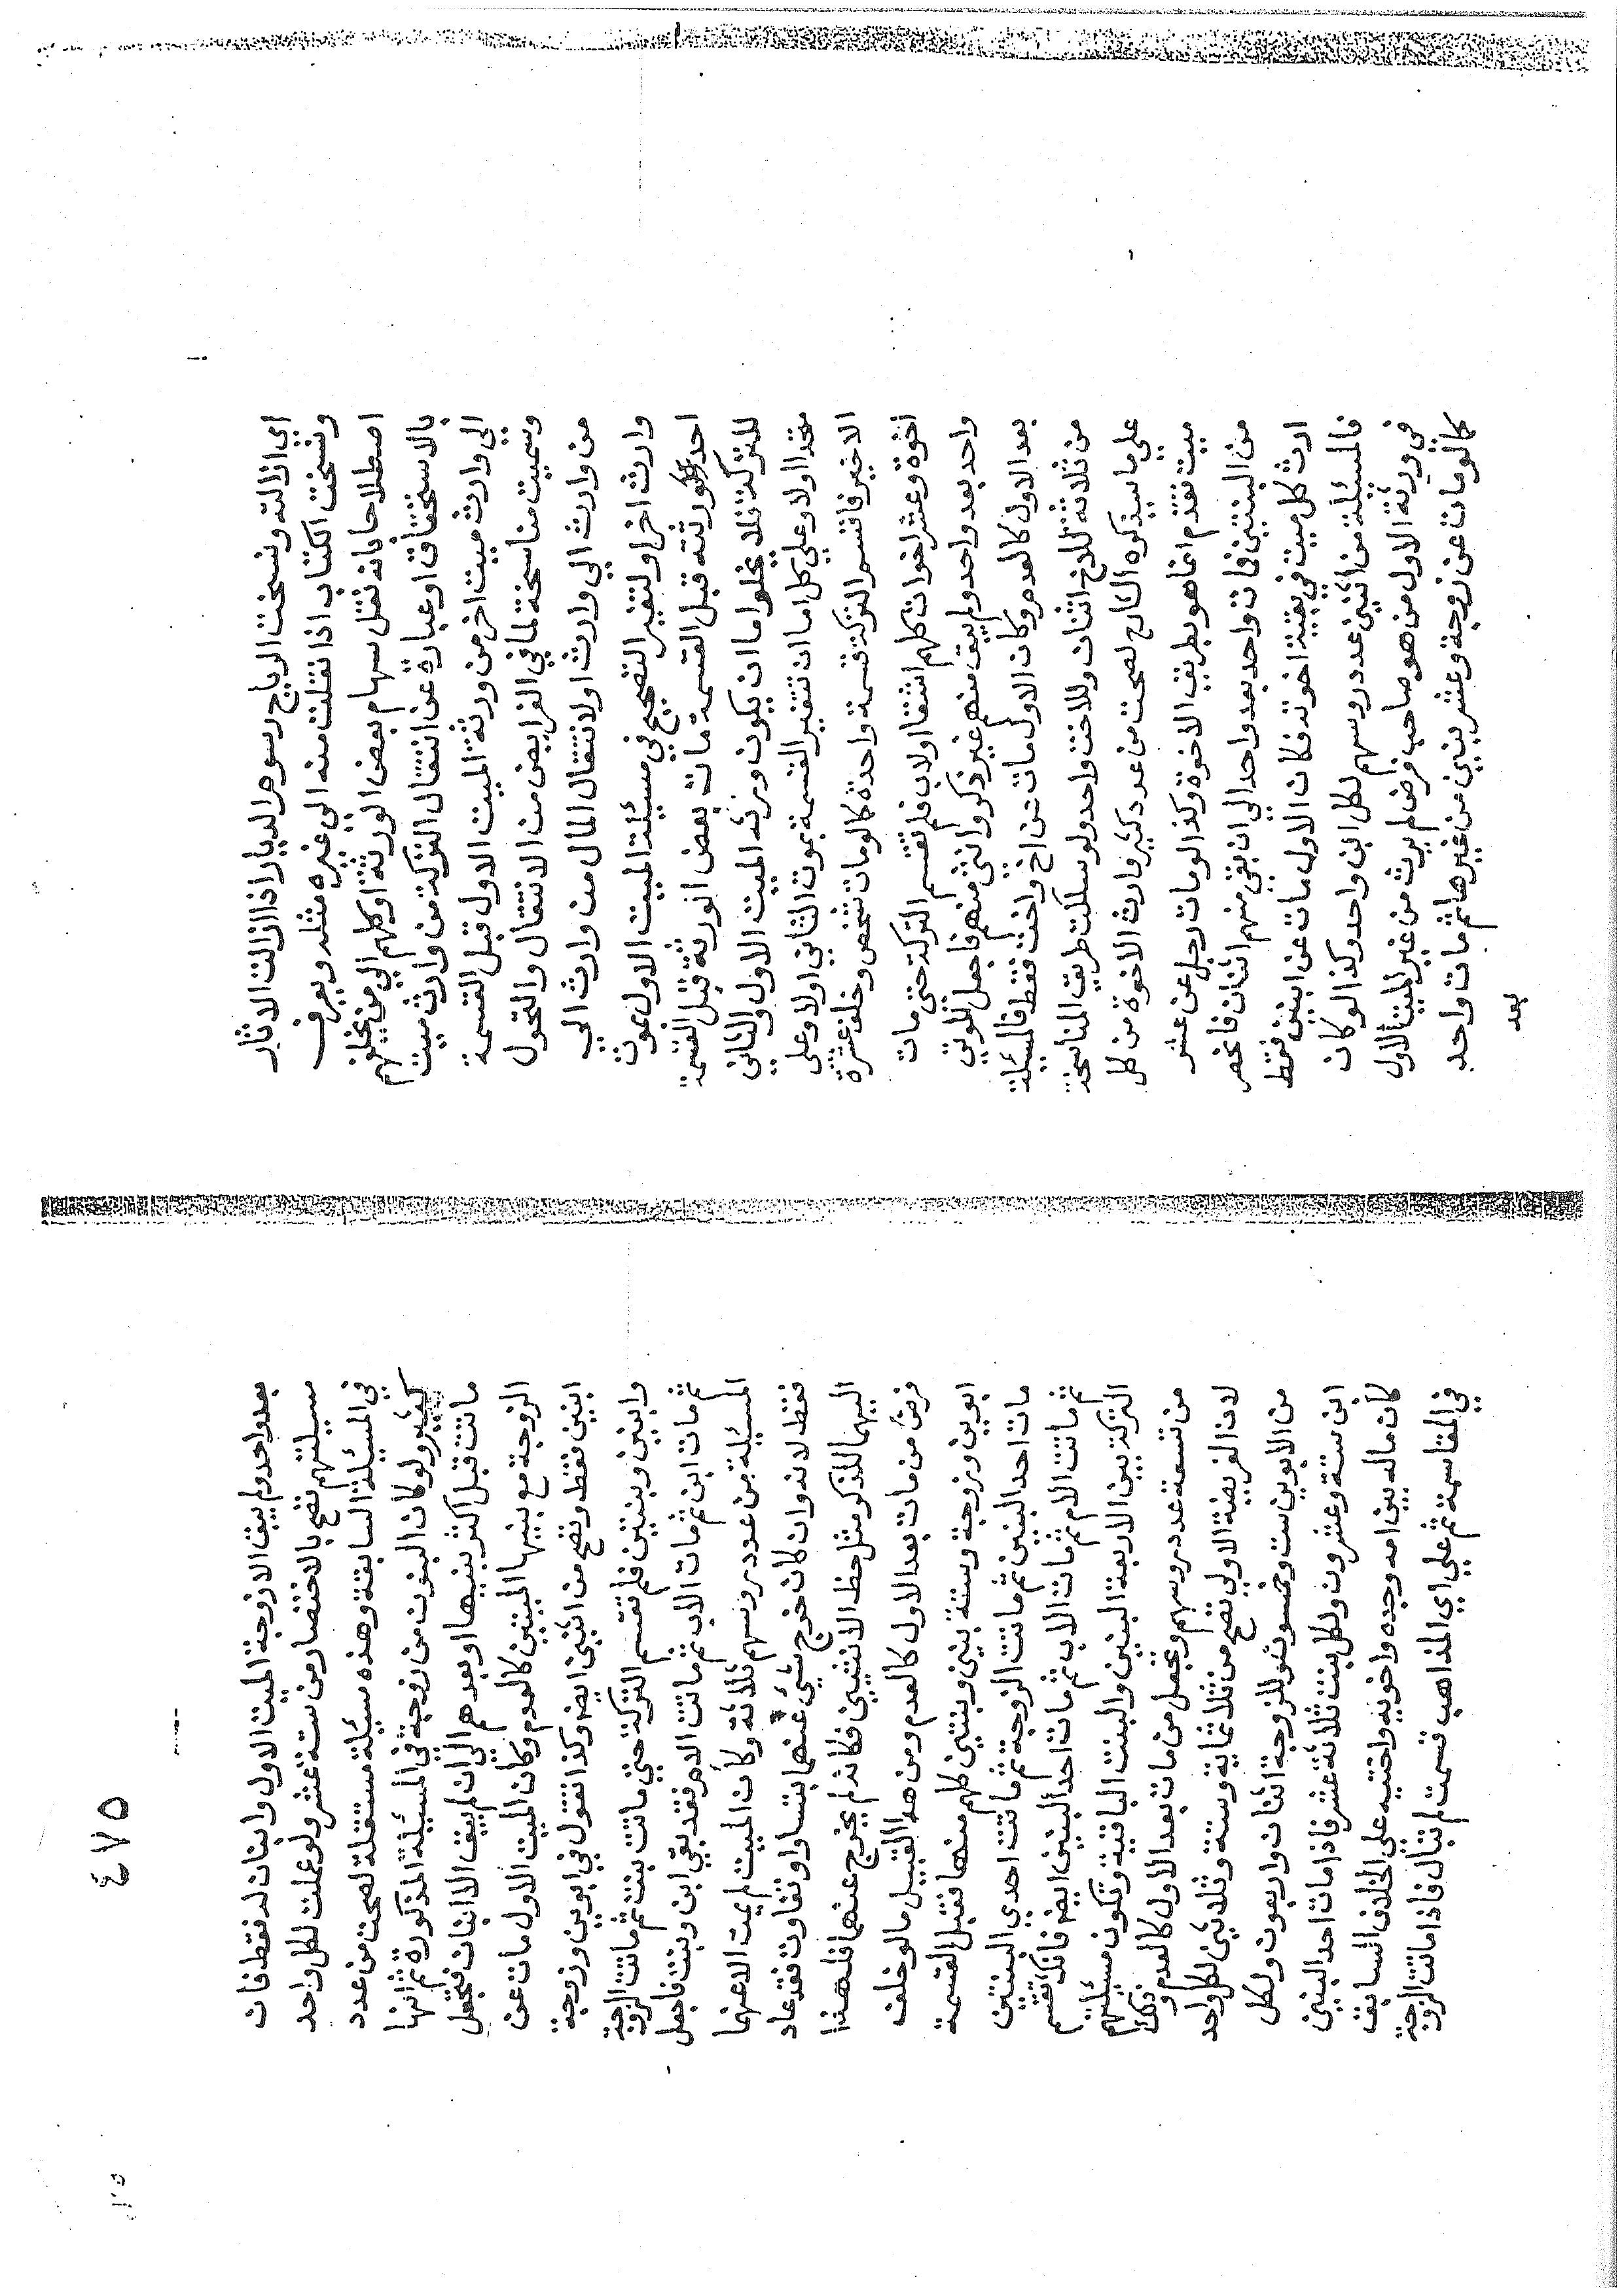 اي ازالته ونسخت الرياح رسوم الديار اذا ازالت الاثار
ونسخت الكتاب اذا نقلت منه الي غيره مثله ويعرف
اصطلاحا بانه نقل سهام بعض الورثة او كلهم الي من يخلفهم
بالاستحقاق او عبارة عن انتقال التركة من وارث ميت
الي وارث ميت اخر من ورثة الميت الاول قبل القسمة
وسميت مناسخة لما في الفرايض من الانتقال والتحول
من وارث الي وارث او لانتقال المال من وارث الي
وارث اخر او لتغير التصحيح في مسئلة الميت الاول بموت
احد ورثته قبل القسمة مات بعض الورثة قبل القسمة
للتركة فلا يخلوا اما ان يكون ورثه الميت الاول والثاني
متحدا اولا وعلي كل اما ان تتغير القسمة بموت الثاني اولا وعلي
الاخير فاقسم التركة قسمة واحدة كما لو مات شخص وخلف عشرة
اخوة وعشر اخوات كلهم اشقا او لاب فلم تقسم التركة حتي مات
واحد بعد واحد ولم يبق منهم غير ذكر وانثي منهم فاجعل المتوفي
بعد الاول كالعدم وكان الاول مات عن اخ واخت فقط فالمسئلة
من ثلاثة للاخ اثنان وللاخت واحد ولو سلكت طريق المناسخة
علي ما سيذكره الشارح لصحت من عدد كثير فارث الاخوة من كل
ميت تقدم انما هو بطريق الاخوة وكذا لو مات رجل عن عشر
من البنين فمات واحد بعد واحد الي ان بقي منهم اثنان فانحصر
ارث كل ميت في بقية اخوته فكان الاول مات عن ابنين فقط
فالمسئلة من اثنين عدد روسهم لكل ابن واحد وكذا لو كان
في ورثة الاول من هو صاحب فرض لم يرث من غير الميت الاول
كما لو مات عن زوجة وعشر بنين من غيرها ثم مات واحد
بعد
٤٧٥
بعد واحد ولم يبق الا زوجة الميت الاول وابنان له فقط فان
مسيلتهم تصح بالاختصار من ستة عشر ولو عملت لكل واحد
في المسيلة السابقة وهذه مسيلة مستقلة لصحت من عدد
كثير ولو كان البنون من زوجة في المسيلة المذكورة ثم انها
ماتت قبل اكثر بنيها او بعدهم الي ان لم يبق الا ابنان فتجعل
الزوجة مع بنيها الميتين كالعدم وكان الميت الاول مات عن
ابنين فقط وتصح من اثنين ايضا وكذا نقول في ابوين وزوجة
وابنين وبنتين فلم تقسم التركة حتي ماتت بنت ثم ماتت الزوجة
ثم مات ابن ثم مات الاب ثم ماتت الام فقد بقي ابن وبنت فاجعل
المسيلة من عدد روسهم ثلاثة وكان الميت لم يمت الا عنهما
فقط لانه وان كان خرج شيء عنهما بتساو او تفاوت فقد عاد
اليهما للذكر مثل حظ الانثيين فكانه لم يخرج عنهما فلهذا
فرض من مات بعد الاول كالعدم ومن هذا القبيل ما لو خلف
ابوين وزوجة وستة بنين وبنتين كلهم منها فقبل القسمة
مات احد البنين ثم ماتت الزوجة ثم ماتت احدي البنتين
ثم ماتت الام ثم مات الاب ثم مات احد البنين ايضا فانك تقسم
التركة بين الاربعة البنين والبنت الباقية وتكون مسيلتهم
من تسعة عدد روسهم وتجعل من مات بعد الاول كالعدم وذلك
لان الفريضة الاولي تصح من ثلاثماية وستة وثلاثين لكل واحد
من الابوين ست وخمسون وللزوجة اثنان واربعون ولكل
ابن ستة وعشرون ولكل بنت ثلاثة عشر فاذا مات احد البنين
كان ماله بين امه وجده واخوته واختيه علي الخلاف السابق
في المقاسمة ثم علي اي المذاهب قسمت لم تبال فاذا ماتت الزوجة